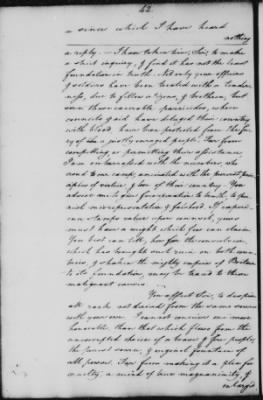 42
a rumor which I have heard
nothing
a reply. — I have taken time, Sir, to make
a strict inquiry, & find it has not the least
foundation in truth. Not only your officers
& soldiers have been treated with a tender-
ness, due to fellow citizens, & brethren, but
even those execrable parricides, whose
counsels & aid have deluged their country
with blood, have been protected from the fu-
ry of a justly enraged people. Far from
compelling or permitting their assistance,
I am embarrassed with the numbers, who
crowd to our camp, animated with the purest prin-
ciples of virtue & love of their country. You
advise me to give free operation to truth, to pun-
ish misrepresentation & falsehood. If experi-
ence stamps value upon counsel, yours
must have a weight which few can claim.
You best can tell, how far the convulsion,
which has brought such ruin on both coun-
tries, & shaken the mighty empire of Britain
to its foundation, may be traced to these
malignant causes.
You affect, Sir, to despise
all rank not derived from the same source
with your own. I cannot conceive one more
honorable than that which flows from the
uncorrupted choice of a brave & free people,
the purest source, & original fountain of
all power. Far from making it a plea for
cruelty, a mind of true magnanimity, &
enlarged